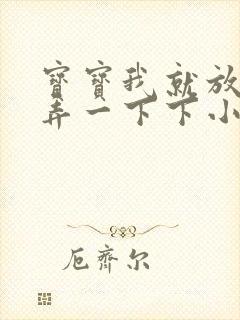 寶寶我就放
弄一下下小
厄齊尔